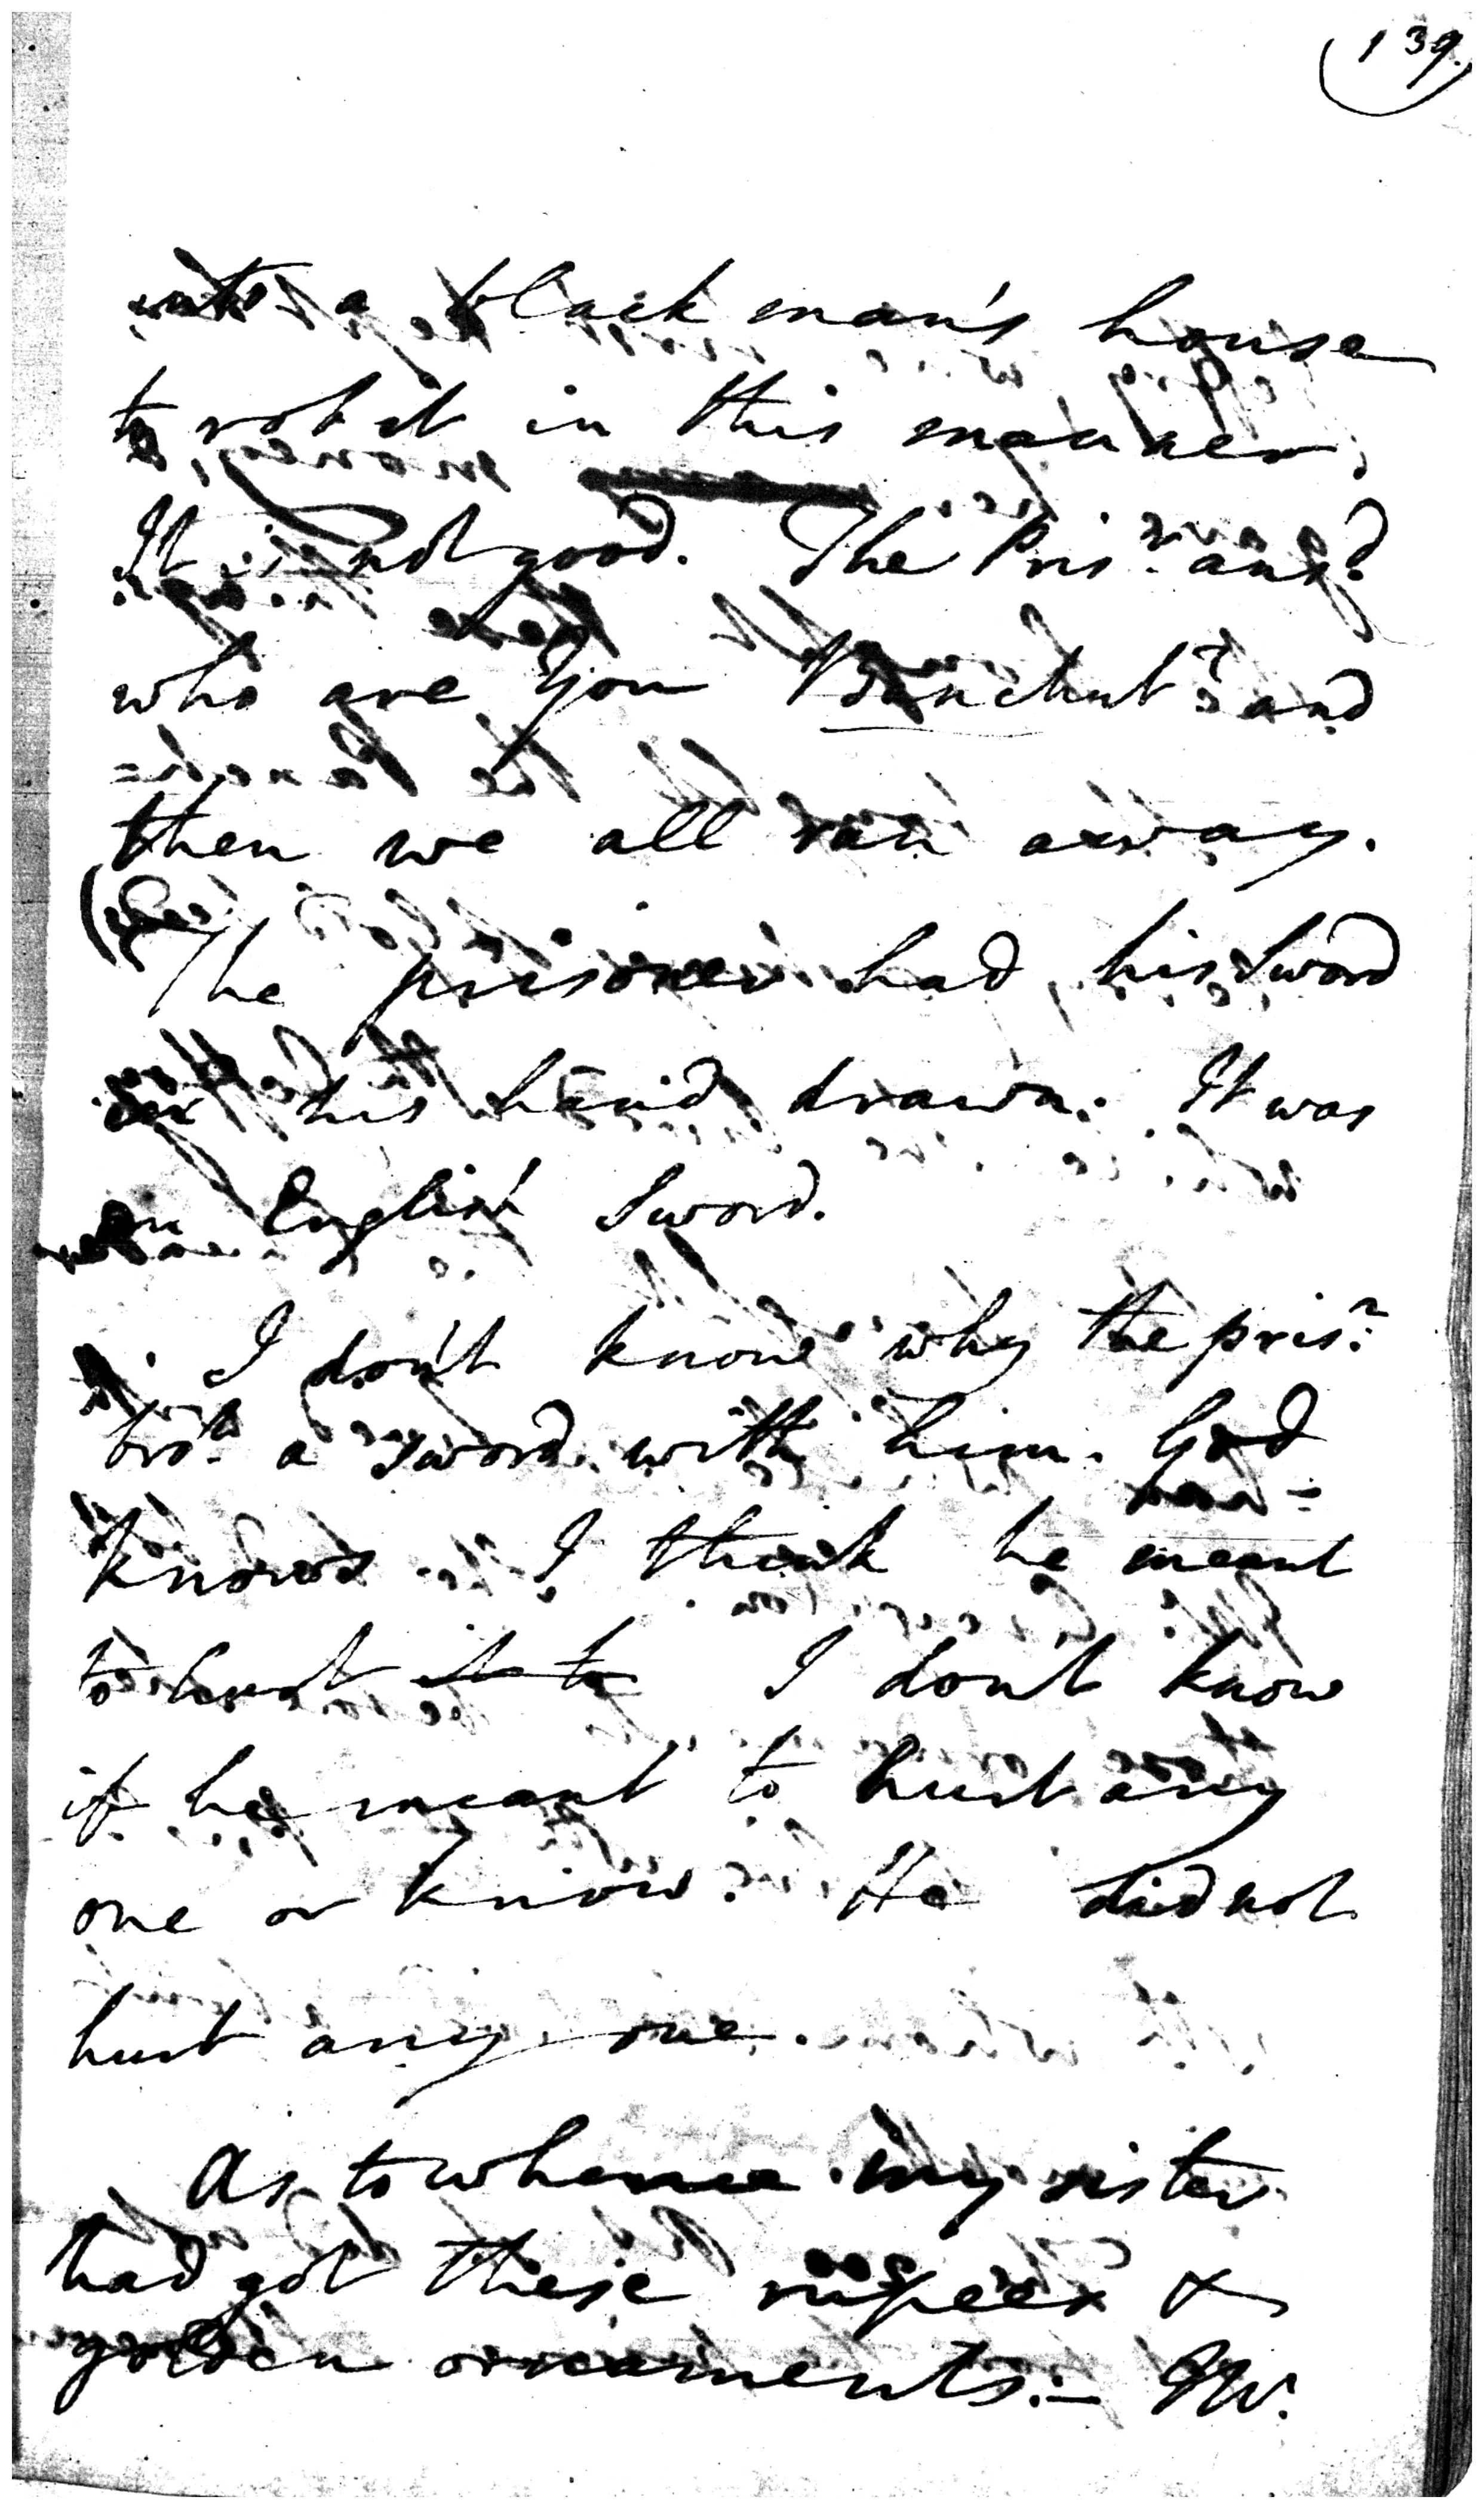 139.
into a black man's house
to rob it in this manner.
It is not good. The Prisr. ansd.
who are you Banchut? and
then we all ran away.
The prisoner had his Sword
in his hand drawn. It was
an English Sword.
I don't know why the prisr.
brot. a sword with him. God
knows I think he meant
to hurt it to I don't know
if he meant to hurt any
one or know. He did not
hurt any one.
As to whence my sister
had got these rupees &
golden ornaments.—